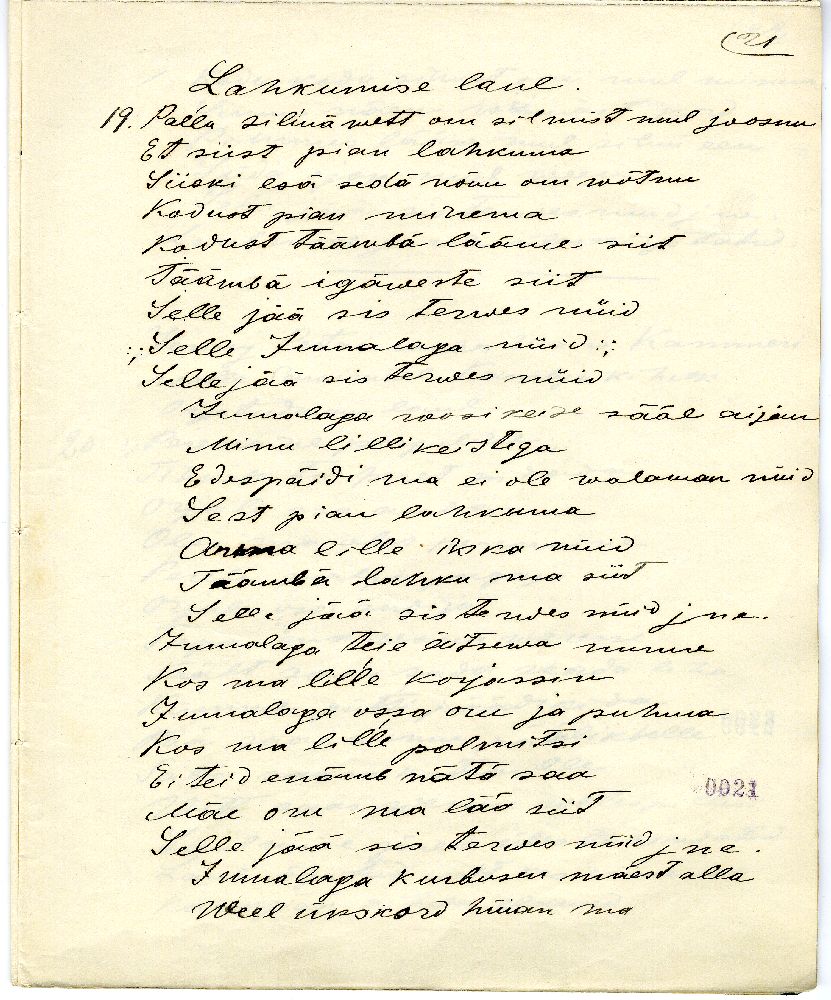 21
Lahkumise laul.
19. Pallu silmäwett om silmist mul joosnu
Et siist pian lahkuma
Siiski esä sedä nõuu om wõtnu
Kodust pian minema
Kodust täämbä lääme siit
Täämbä igäweste siit
Selle jää sis terwes nüid
:; Selle Jumalaga nüid :;
Selle jää sis terwes nüid
Jumalaga roosikeise sääl aijan
Minu lillikeistega
Edespäidi ma ei ole walaman nüid
Sest pian lahkuma
lille ikka nüid
Täämbä lahku ma siit
Selle jää sis terwes nüid jne.
Jumalaga teie äitsewa nurme
Kos ma lille korjassin
Jumalaga ossa oru ja puhma
Kos ma lille palmitsi
Ei teid enämb nätä saa
Mäe oru ma lää siit
Selle jää sis terwes nüid jne.
Jumalaga kurbusen mäest alla
Weel ükskord hüian ma
0021